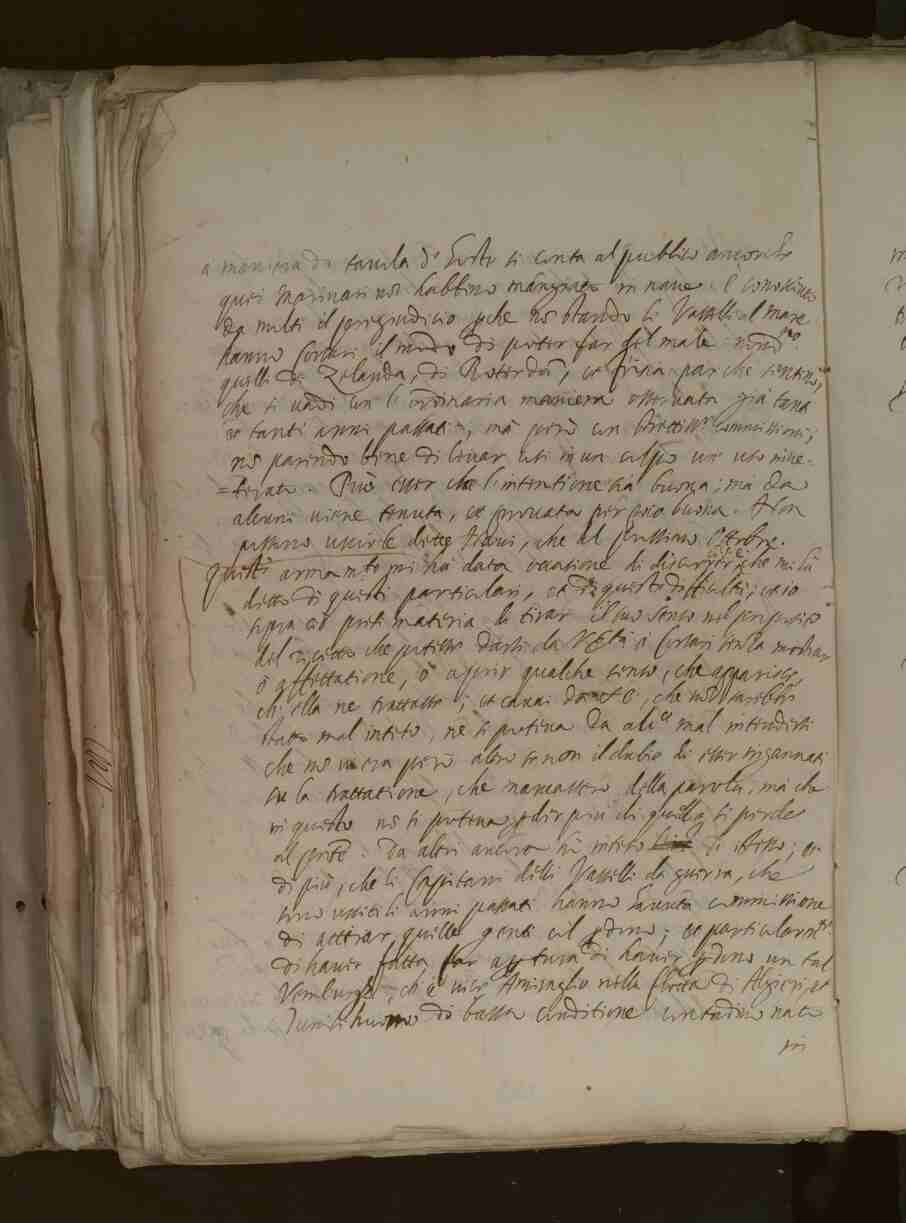 a maniera di tavola d' hoste si conta al pubblico ancorche
quei Marinari non habbino mangiato in nave. è conosciuto
da molti il pregiudicio, che nō stando li Vasselli al mare
hanno Corsari il modo di poter far del male.
quelli di Zelanda, di Roterdā, et par che
che si vadi con l' ordinaria maniera osservata già tanti
et tanti anni passati, mà però con commissioni;
nō parendo bene di levar cosi in un colpo un' uso inve-
=terato. Può esser che l' intentione sia buona; ma da
alcuni viene tenuta, et provata per non buona. Non
usciti le dette Navi, che al prossimo Ottobre.
Questo armamto mi hà data occasione di discorrere, che mi hà
detto di questi particolari, et di queste difficultà; et io
sopra cio presi materia di tirar il suo senso nel proposito
del che potesse darsi da VV. EE. à Corsari senza mostrar
ò affettatione, ò aprir qualche senso, che apparisse,
ch' ella ne trattasse; et cavai che non sarebbe
stato mal inteso, ne si poteva da alc.o mal intendersi
che nō vi era però altro se non il dubio di esser ingannati
con la trattatione, che mancassero della parola, mà che
in questo nō si poteva perder più di quello si perde
al pñte. Da altri ancora hò inteso lo stesso; et
di più, che li Capitani delli Vasselli di guerra, che
sono usciti li anni passati hanno havuta commissione
di attirar quelle genti col pdono; et particolarmte
di haver fatta far apertura di haver pdono un tal
ch' è vice Amiraglio nella flotta di Algieri, et
huomo di bassa conditione contadino nato
in